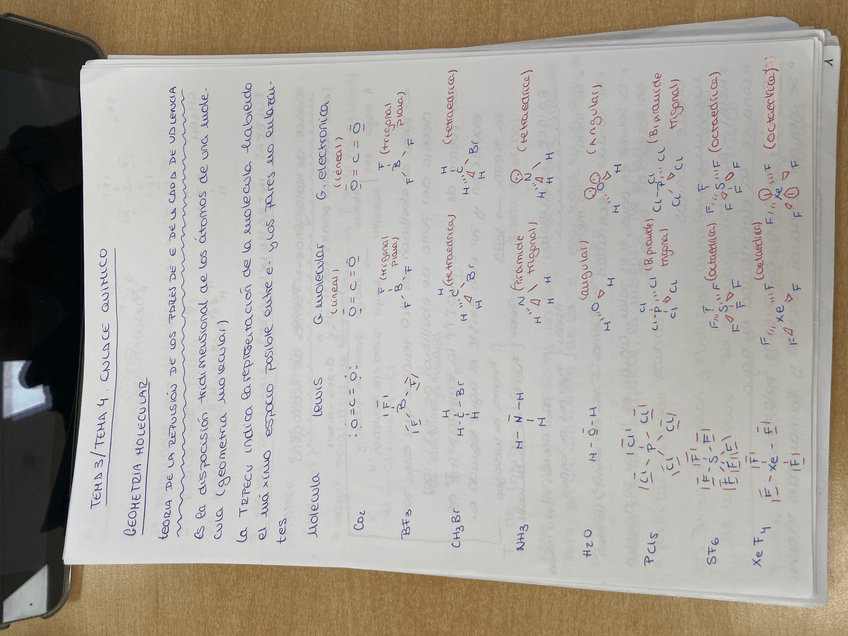 TEMA 3/TEMA 4. ENLACE QUIMICO
GEOMETRIA MOLECULAR
TEORIA DE LA REPULSIÓN DE LOS PARES DE E DE LA CAPA DE VALENCIA
Es la disposición tridimensional de los átomos de una molé-
cula (geometria molecular)
La TRPECV indica la representación de la molecula habiendo
el máximo espacio posible entre e- y los pares no enlazan-
tes.
Molecula Lewis G. molecular G. electronica
(lineal) (lineal)
CO2 O=C=O O=C=O O=C=O
BF3 F B F F F B F F (trigonal plana) F B F F (trigonal plana)
CH3Br H H-C-Br H H C Br H H (tetraedrica) H C Br H H (tetraedrica)
NH3 H-N-H H N H H H (Piramide trigonal) N H H H (tetraedrica)
H2O H-O-H O H H (angular) O H H (Angular)
PCl5 Cl Cl P Cl Cl Cl Cl Cl-P Cl Cl Cl (Bipiramide trigonal) Cl Cl-P Cl Cl Cl (Bipiramide trigonal)
SF6 F F S F F F F F F S F F F F (octaedrica) F F S F F F F (octaedrica)
XeF4 F F-Xe-F F F F Xe F F (octaedrica) F F Xe F F (octaedrica)
1